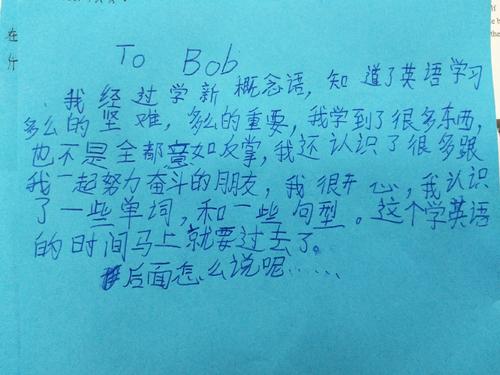 在
To Bob
我经过学新概念语,知道了英语学习
多么的坚难,多么的重要,我学到了很多东西,
也不是全都意如反掌,我还认识了很多跟
我一起努力奋斗的朋友,我很开心,我认识
了一些单词,和一些句型。这个学英语
的时间马上就要过去了。
后面怎么说呢……